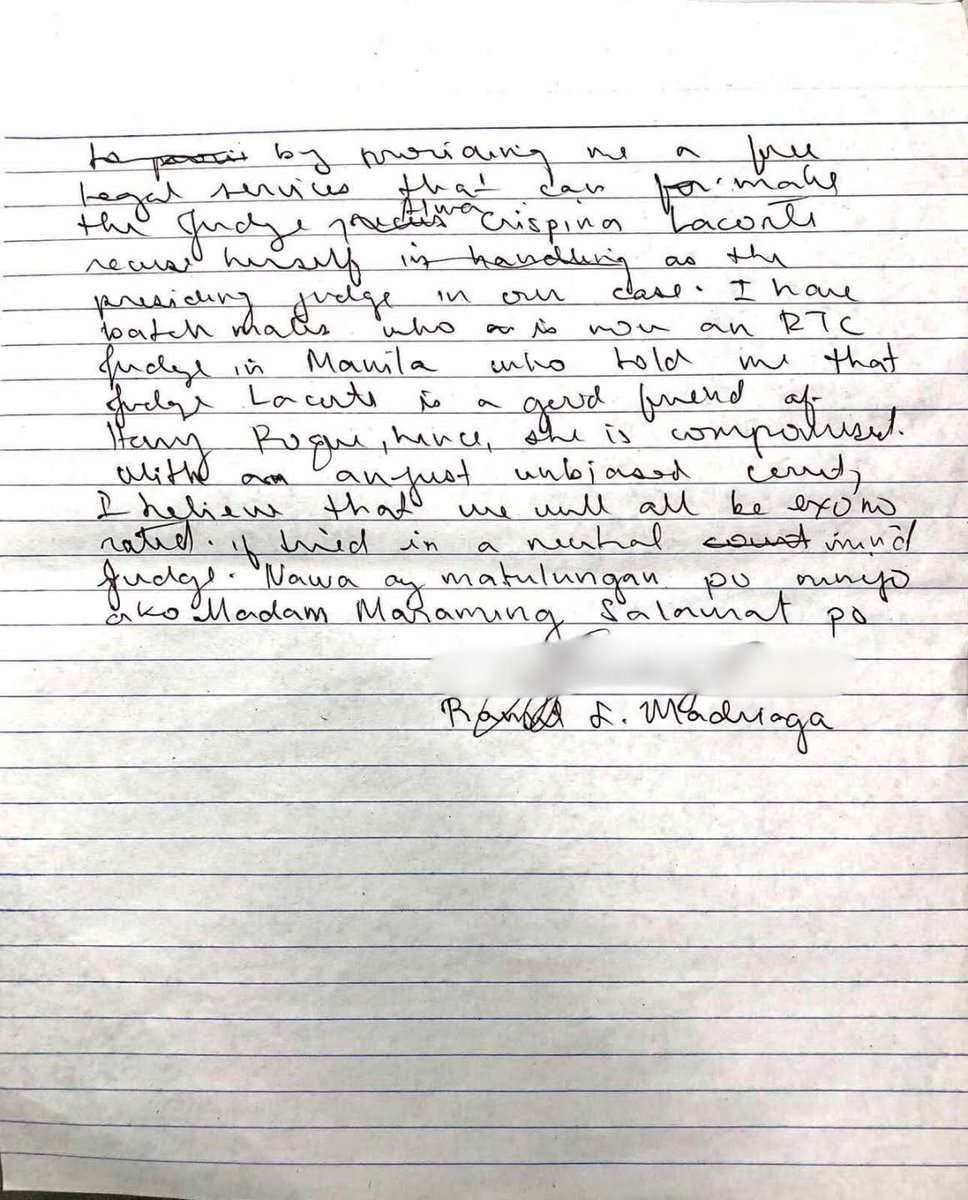 by providing me a free
Legal services that can make
the Judge Ma Crispina Lacorte
recuse herself as the
presiding judge in our case. I have
batch mates who is now an RTC
Judge in Manila who told me that
Judge Lacorte is a good friend of
Harry Roque, hence, she is compomised.
With an just unbiased court,
I believe that we will all be exono
rated. if tried in a neutral mind
Judge. Nawa ay matulungan po ninyo
ako Madam Maraming Salamat po
L. Madriaga